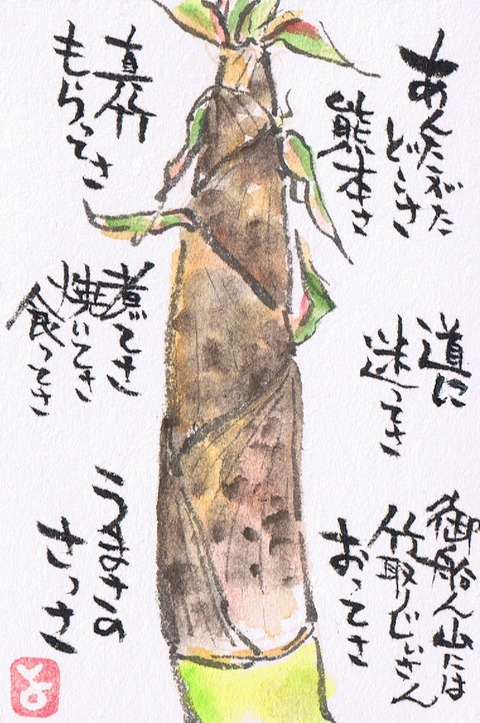 あんたがた
どこさ
熊本さ
道に
迷ってさ
御船ん山には
竹取りじいさん
おってさ
真竹
もらってさ
煮てさ
焼いてさ
食ってさ
うまさの
さっさ